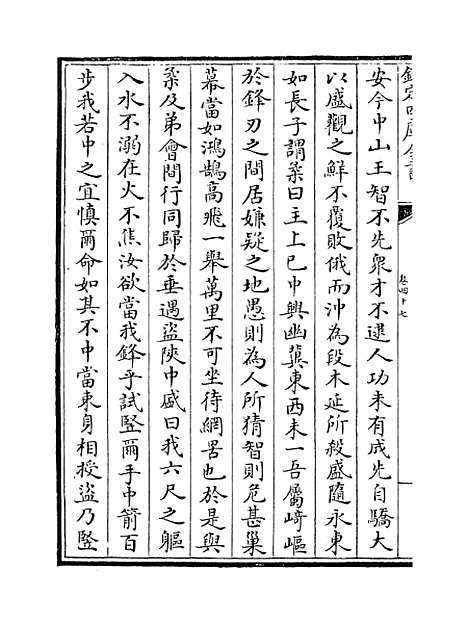 欽定四庫全書
卷四十七
安今中山王智不先衆才不逮人功未有成先自驕大
以盛觀之鮮不覆敗俄而沖為段木延所殺盛隨永東
如長子謂柔曰主上已中興幽冀東西未一吾屬﨑嶇
於鋒刃之間居嫌疑之地愚則為人所猜智則危甚巢
幕當如鴻鵠高飛一舉萬里不可坐待網罟也於是與
柔及弟會間行同歸於垂遇盜陜中盛曰我六尺之軀
入水不溺在火不焦汝欲當我鋒乎試竪爾手中箭百
步我若中之宜慎爾命如其不中當束身相授盜乃竪